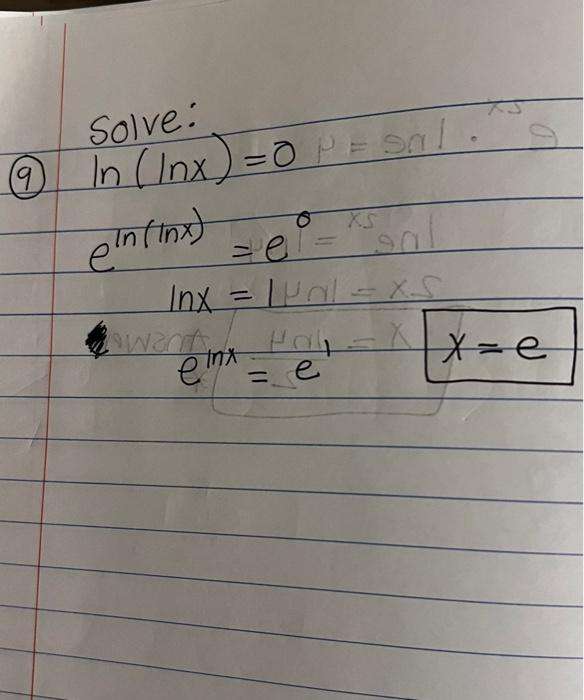 Solve:
⑨ ln(lnx)=0
e^ln(lnx) = e^0
lnx = 1
e^lnx = e^1
x=e